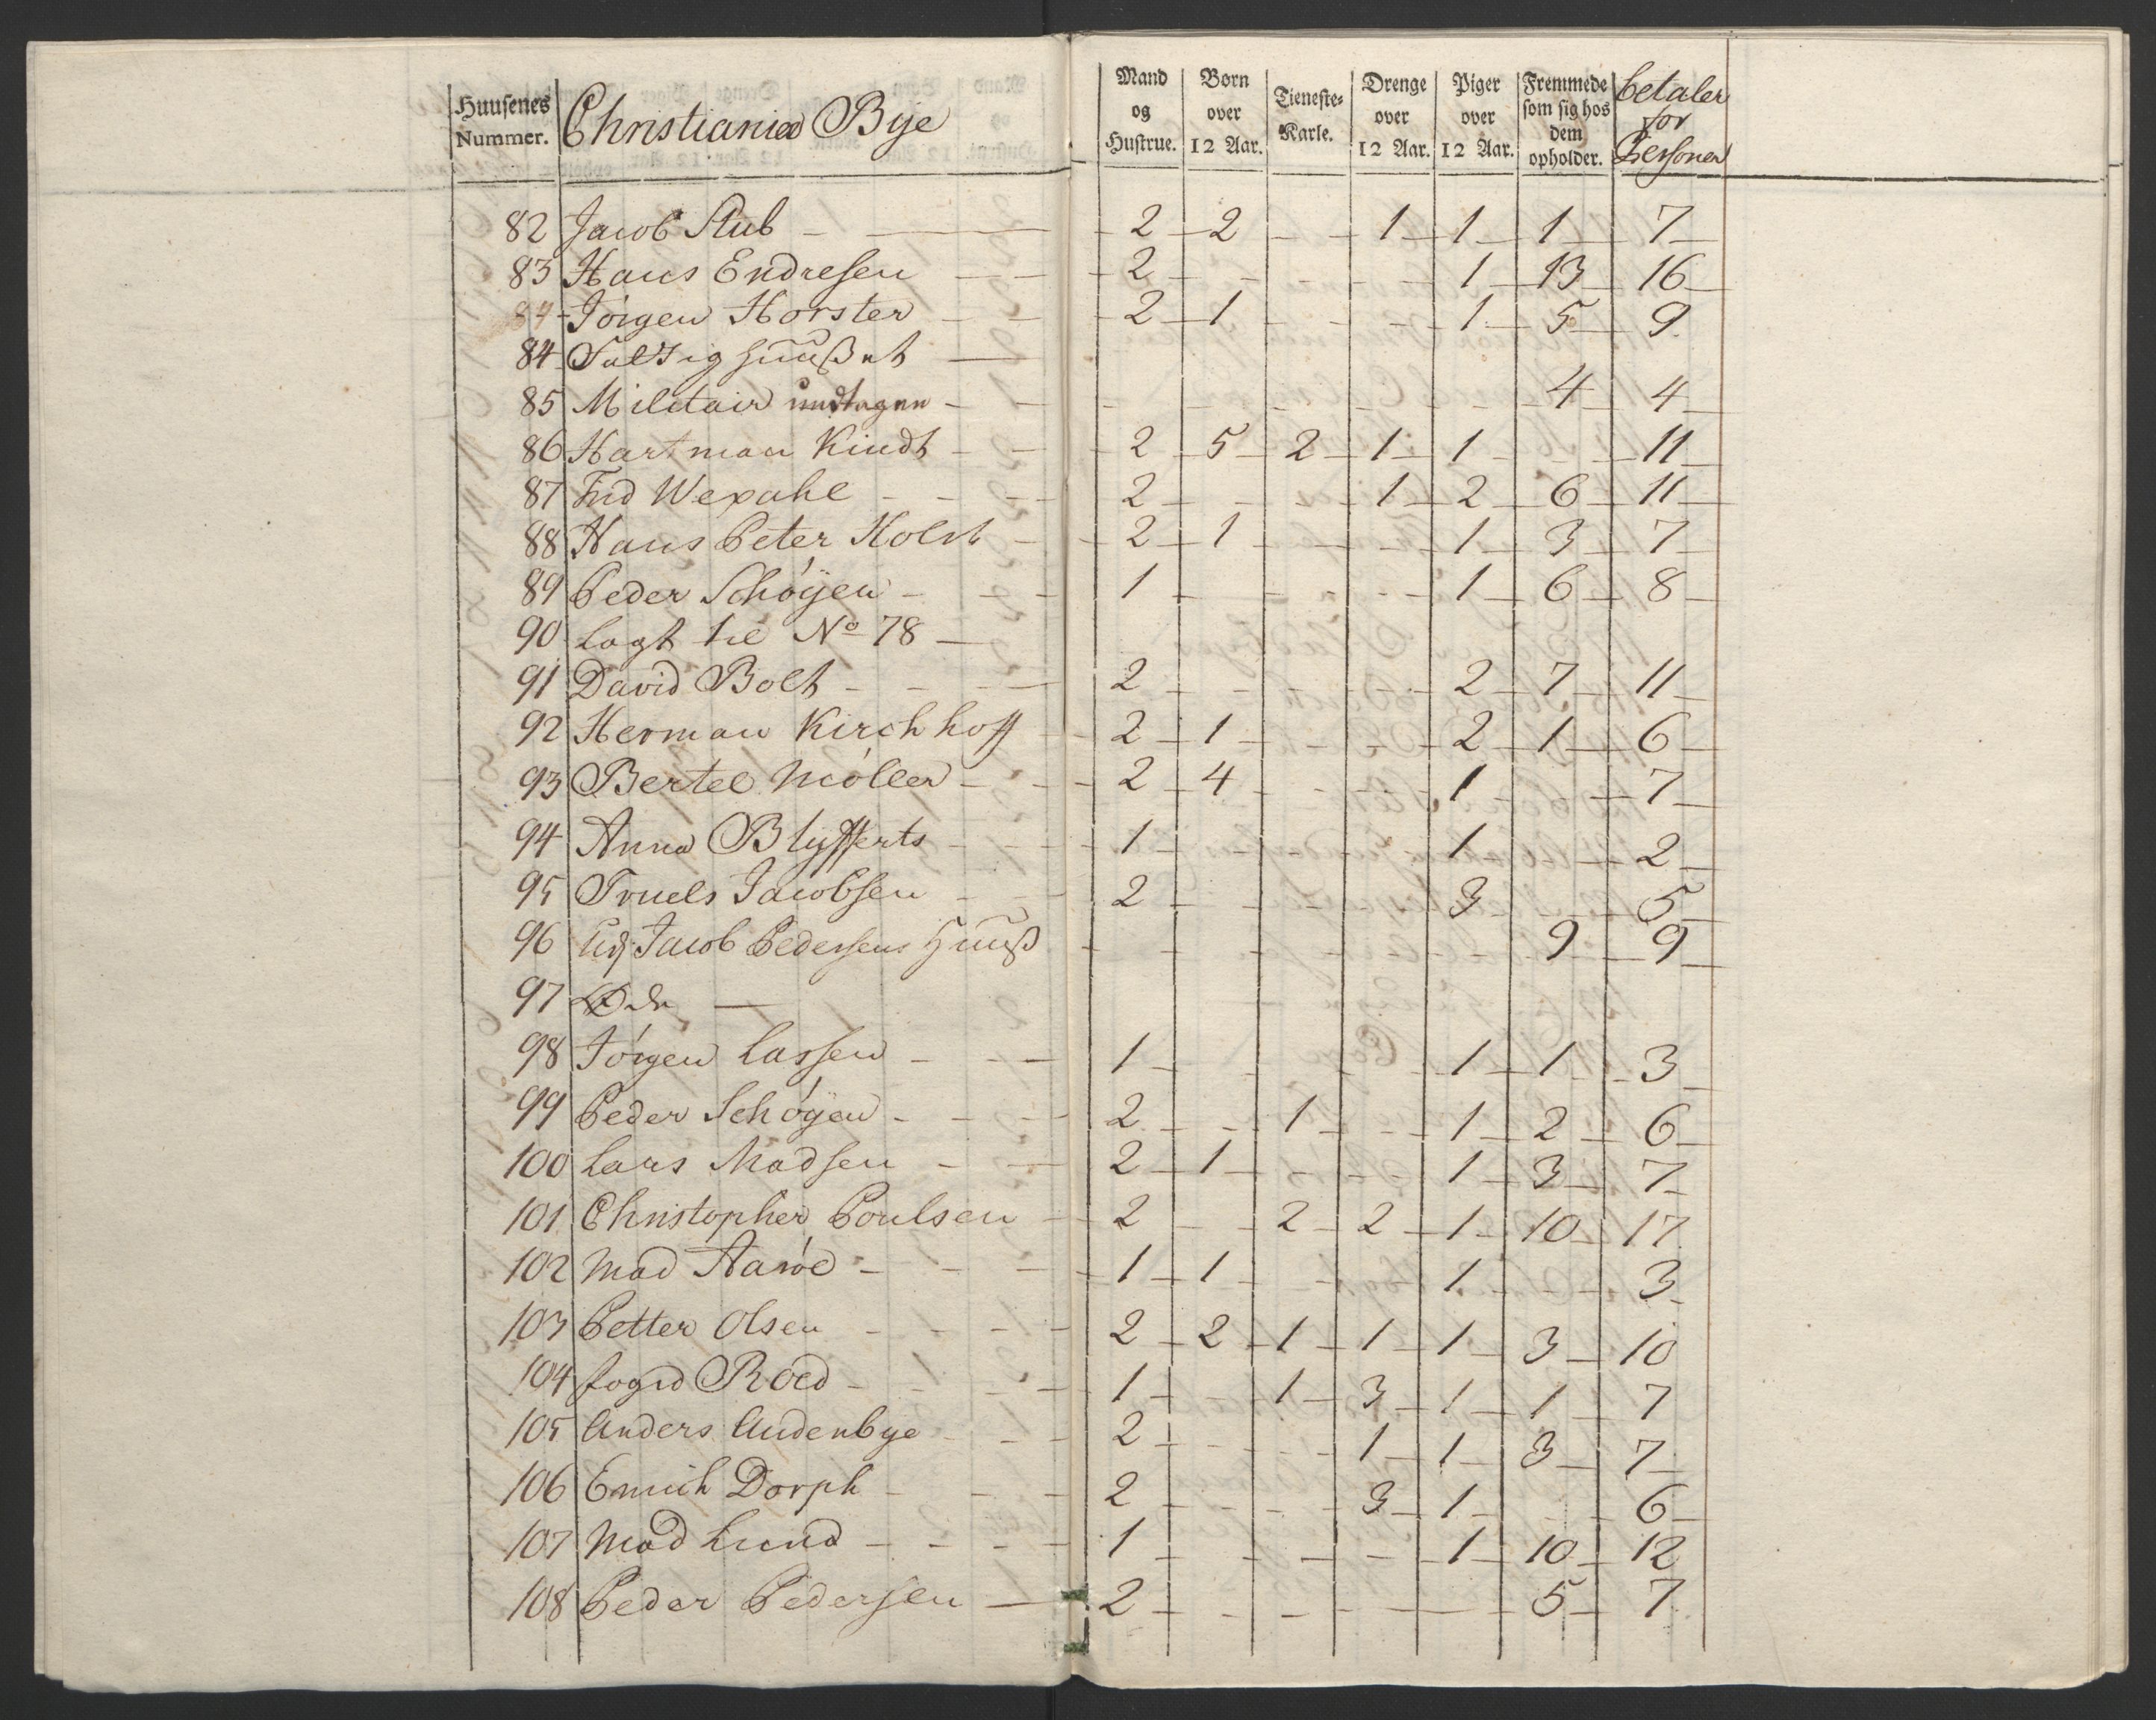 Huusenes Nummer. Christiania Bye Mand og Hustrue. Børn over 12 Aar. Tieneste-Karle. Drenge over 12 Aar. Piger over 12 Aar. Fremmede som sig hos dem opholder. betaler for Personer
82 Jacob Stub 2 2 1 1 1 7
83 Hans Endresen 2 1 13 16
84 Jørgen Horster 2 1 1 5 9
84 Fattig Huuset
85 Militair undtagen 4 4
86 Hartman Kindt 2 5 2 1 1 11
87 Frid 2 1 2 6 11
88 Hans Peter Holst 2 1 1 3 7
89 Peder Schøyen 1 1 6 8
90 Lagt til No 78
91 David Bolt 2 2 7 11
92 Herman Kirchhoff 2 1 2 1 6
93 Bertel Møller 2 4 1 7
94 Anna Blyfferts 1 1 2
95 Truels Jacobsen 2 3 5
96 Udj Jacob Pedersens Huuß 9 9
97 Øde
98 Jørgen Lassen 1 1 1 3
99 Peder Schøyen 2 1 1 2 6
100 Lars Madsen 2 1 1 3 7
101 Christopher Poulsen 2 2 2 1 10 17
102 Mad Aarøe 1 1 1 3
103 Petter Olsen 2 2 1 1 1 3 10
104 Fogd Roed 1 1 3 1 1 7
105 Anders Audenbye 2 1 1 3 7
106 Emich Dorph 2 3 1 6
107 Mad Lund 1 1 10 12
108 Peder Pedersen 2 5 7